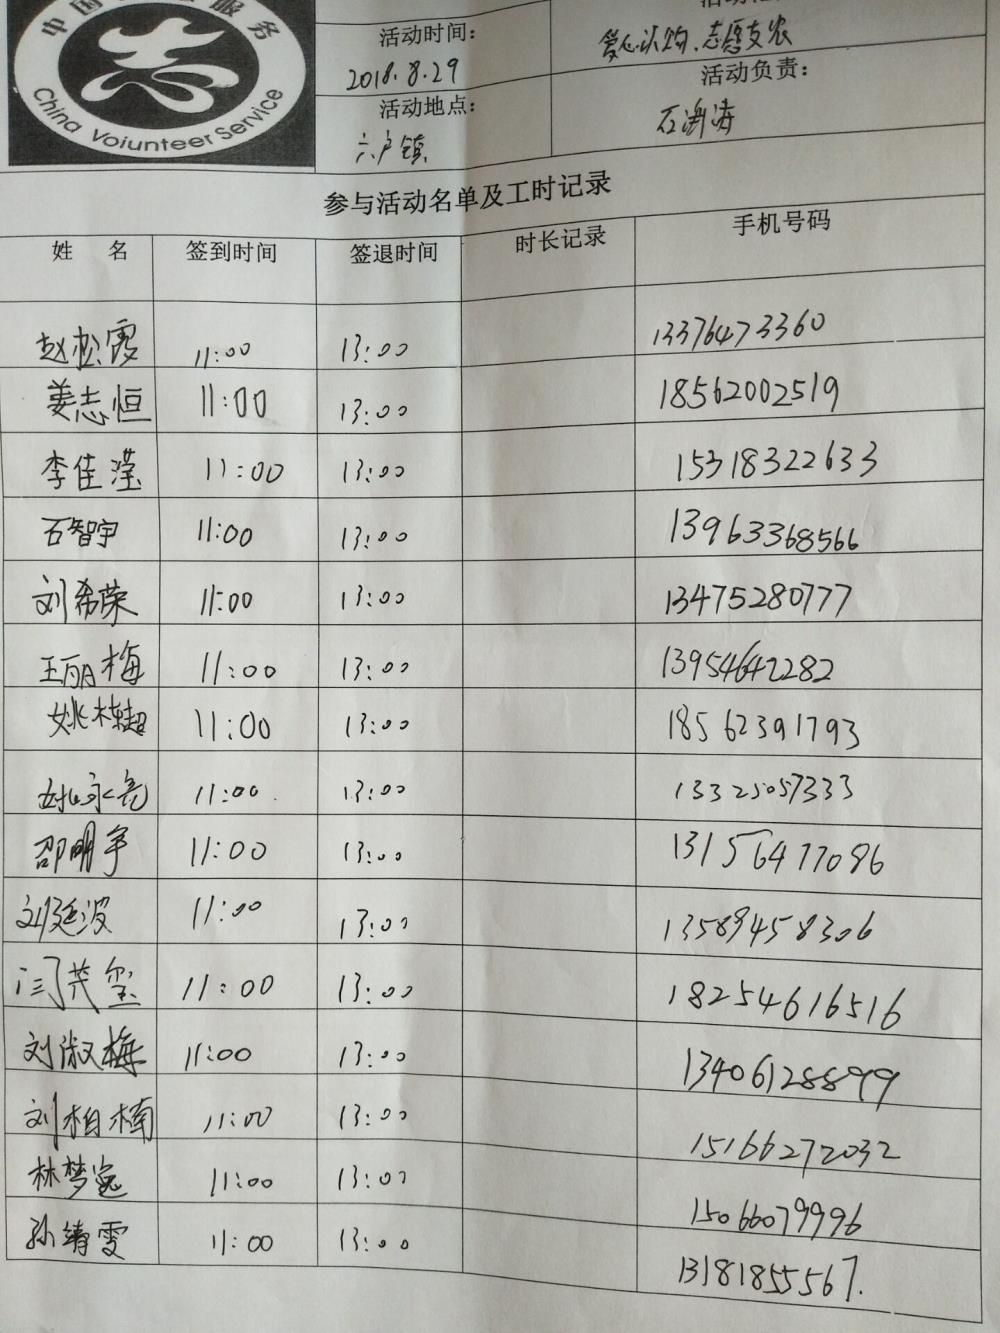 中国 服务
China Volunteer Service
活动时间：
2018.8.29
爱心认购、志愿支农
活动地点：
六户镇
活动负责：
石渊涛
参与活动名单及工时记录
姓 名 签到时间 签退时间 时长记录 手机号码
赵松霞 11:00 13:00 13376473360
姜志恒 11:00 13:00 18562002519
李佳滢 11:00 13:00 15318322633
石智宇 11:00 13:00 13963368566
刘希荣 11:00 13:00 13475280777
王丽梅 11:00 13:00 13954642282
姚栋超 11:00 13:00 18562391793
永亮 11:00 13:00 13325057333
邵明宇 11:00 13:00 13156477086
刘廷波 11:00 13:00 13589458306
闫芃玺 11:00 13:00 18254616516
刘淑梅 11:00 13:00 13406128899
刘柏楠 11:00 13:00 15166272032
林梦逸 11:00 13:00 15066079996
孙靖雯 11:00 13:00 13181855567.